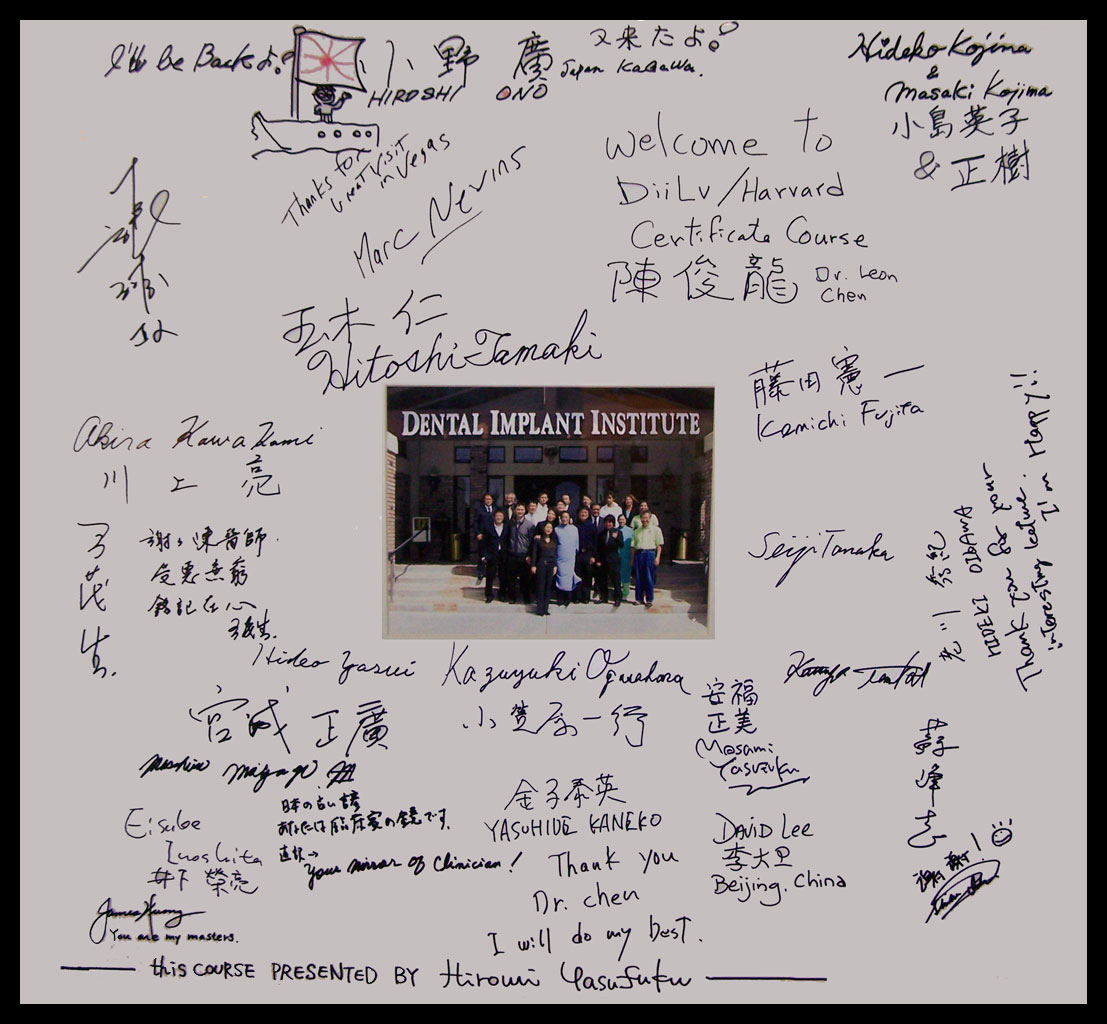 I'll be Backよ!
小野 廣
HIROSHI ONO
又来たよ!
Japan Kagawa.
Hideko Kojima
&
Masaki Kojima
小島英子
& 正樹
Thanks for
Great Visit
in Vegas
Marc Nevins
Welcome to
DiiLV/Harvard
Certificate Course
陳俊龍 Dr. Leon
Chen
玉木 仁
Hitoshi Tamaki
DENTAL IMPLANT INSTITUTE
藤田憲一
Kenichi Fujita
Akira Kawakami
川上 亮
謝々陳醫師.
受惠無窮
銘記在心
Seiji Tanaka
HIDEKI OIKAWA
Thank you for your
interesting lecture. I'm Happy!!
Hideo Yasui
Kazuyuki Ogasahara
小笠原一行
安福
正美
Masami
Yasufuku
宮城 正廣
Miyagi
金子泰英
YASUHIDE KANEKO
Thank you
Dr. chen
I will do my best.
Eisuke
Inoshita
井下 榮亮
日本の古い諺
あなたは臨床家の鏡です.
直訳→
Your mirror of Clinician!
DAVID Lee
李大卫
Beijing. China
謝謝!
James
You are my masters.
this COURSE PRESENTED BY Hiromi Yasufuku